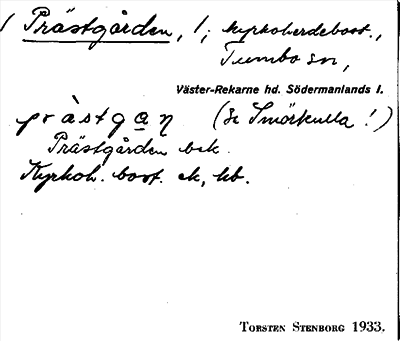 Prästgården, 1; kyrkoherdebost.,
Tumbo sn,
Väster-Rekarne hd. Södermanlands l.
pràstgaṇ (Se Smörkulla!)
Prästgården bek.
Kyrkoh. bost. ek, kb.
TORSTEN STENBORG 1933.